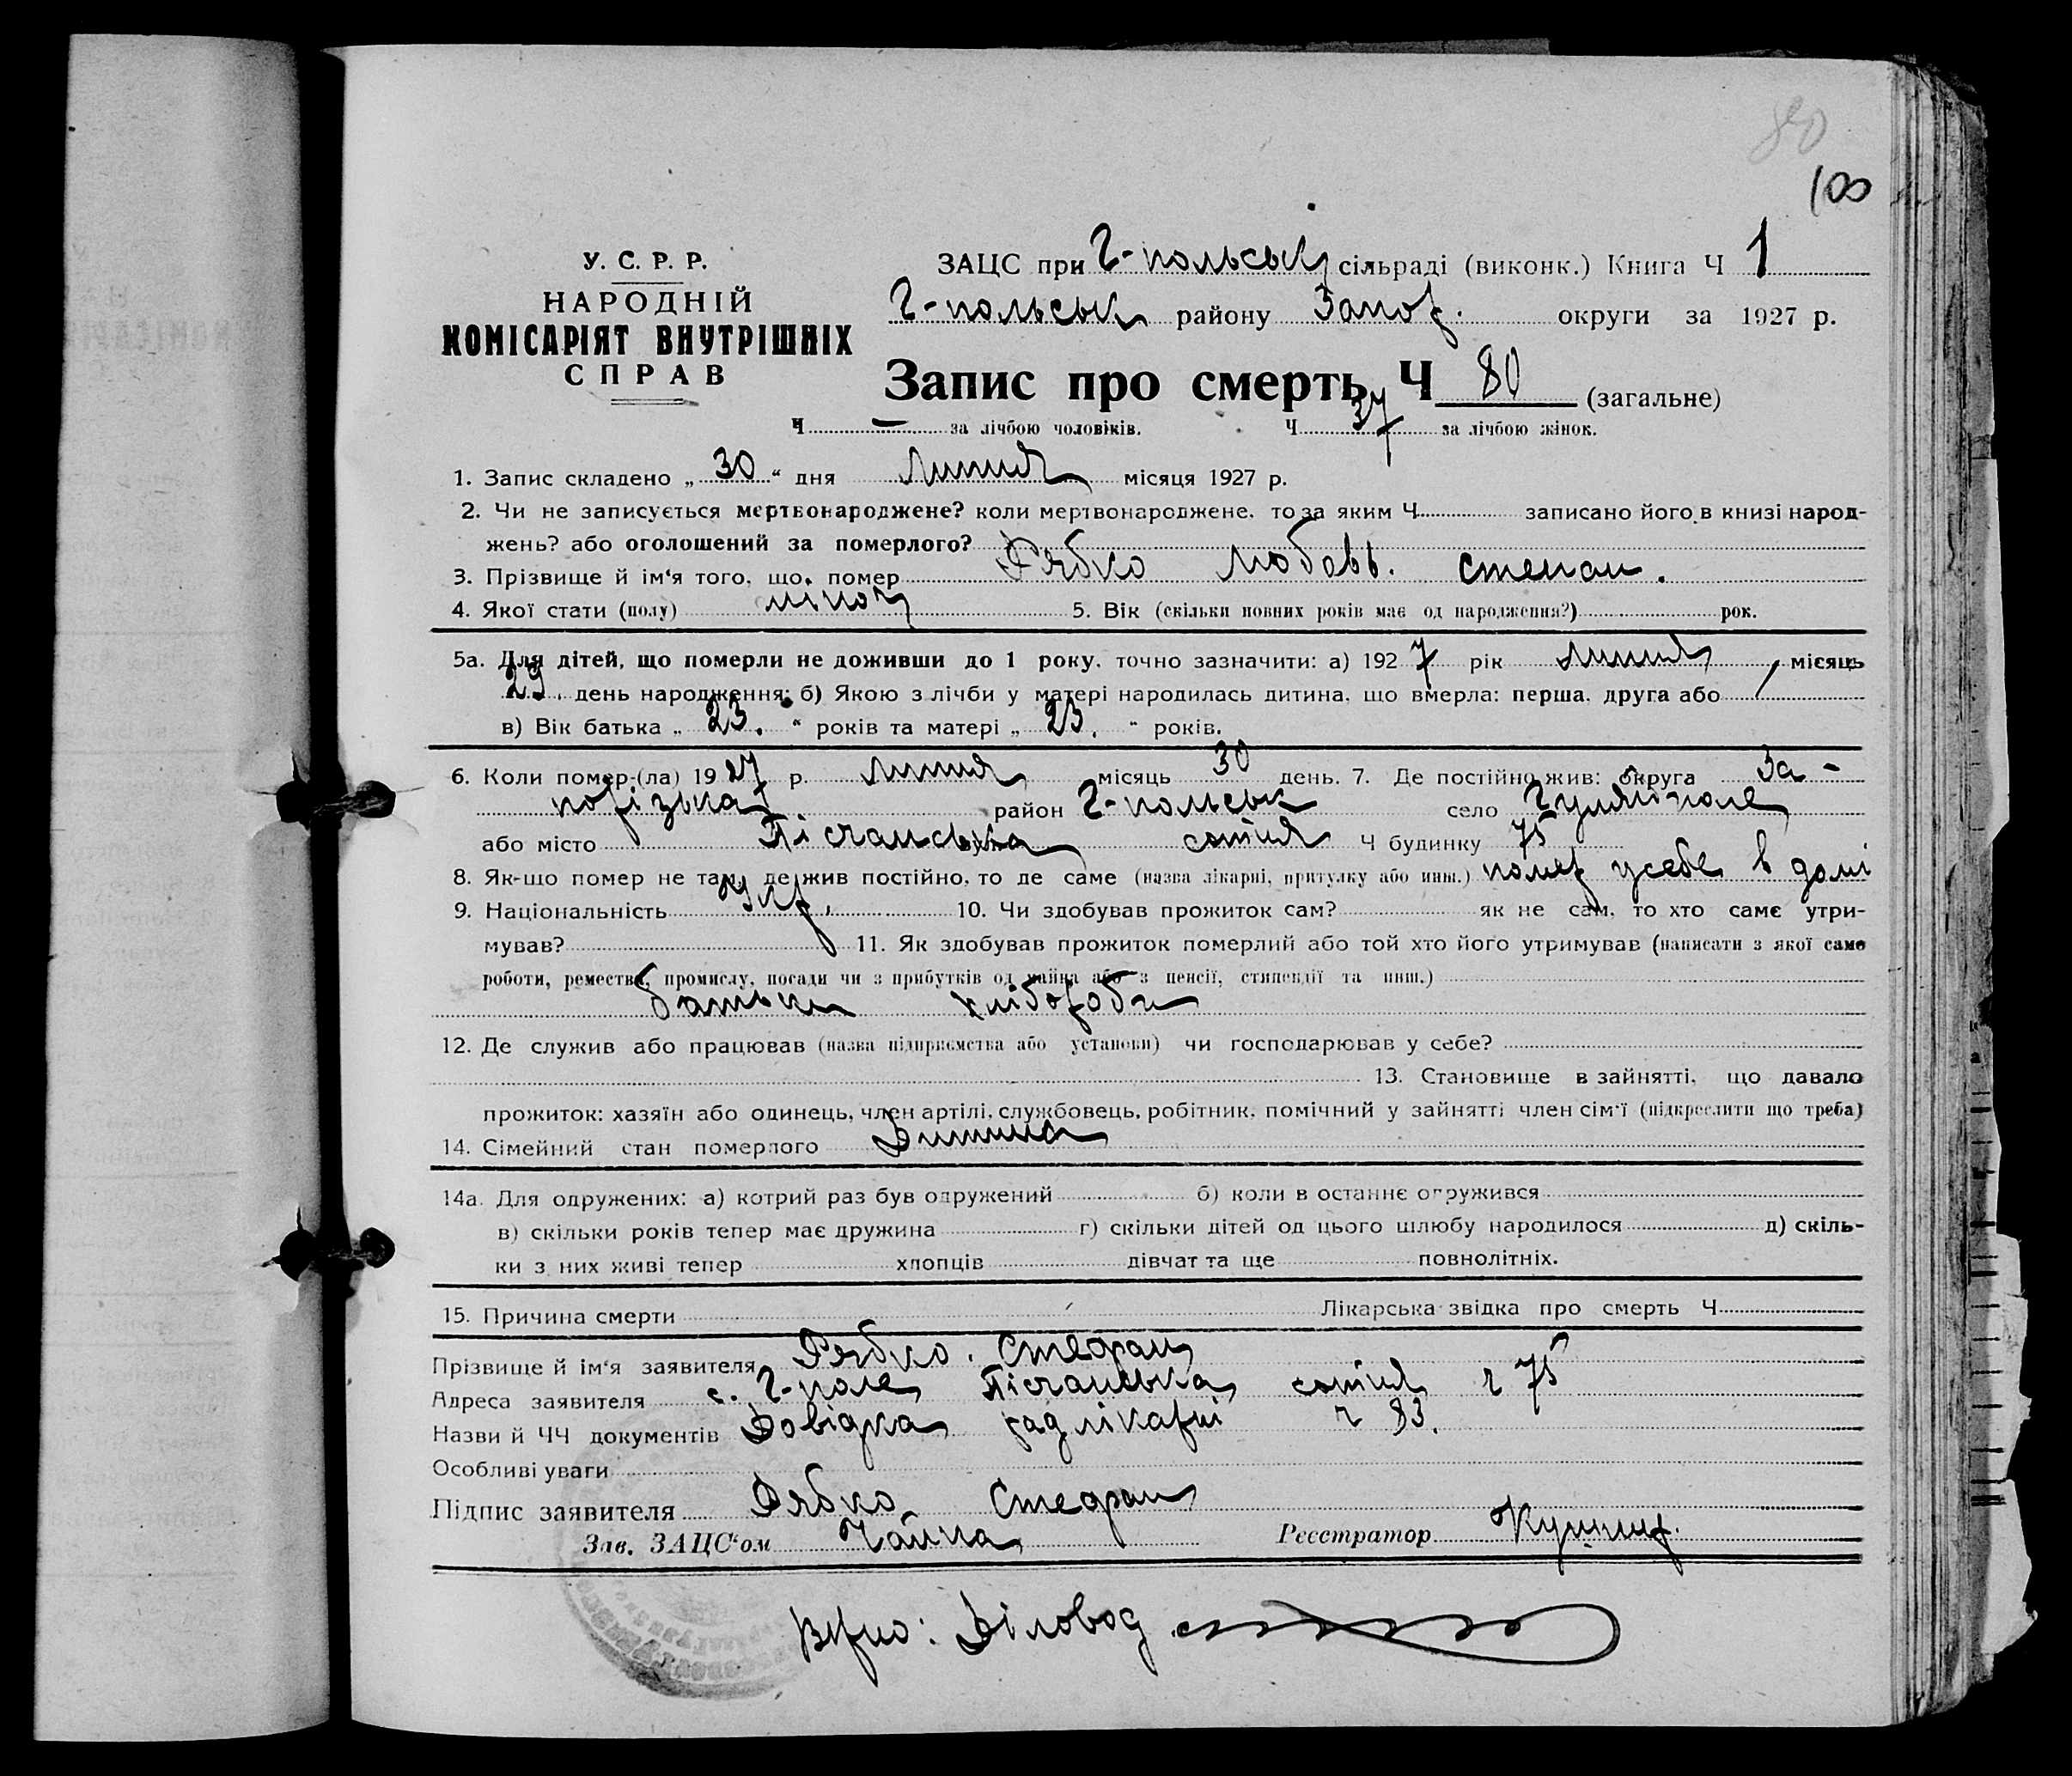 80
100
У. С. Р. Р.
НАРОДНІЙ
КОМІСАРІЯТ ВНУТРІШНІХ
СПРАВ
ЗАЦС при Г-польськ сільраді (виконк.) Книга Ч 1
Г-польськ району Запор. округи за 1927 р.
Запис про смерть Ч 80 (загальне)
Ч — за лічбою чоловіків. Ч 37 за лічбою жінок.
1. Запис складено „ 30 “ дня Липня місяця 1927 р.
2. Чи не записується мертвонароджене? коли мертвонароджене, то за яким Ч записано його в книзі народ-
жень? або оголошений за померлого?
3. Прізвище й ім‘я того, що помер Рябко Любовь. Степан.
4. Якої стати (полу) жіноч 5. Вік (скільки повних років має од народження?) рок.
5а. Для дітей, що померли не доживши до 1 року, точно зазначити: а) 1927 рік Липня місяць
29. день народження; б) Якою з лічби у матері народилась дитина, що вмерла: перша, друга або /
в) Вік батька „ 23. “ років та матері „ 23. “ років.
6. Коли помер-(ла) 1927 р. Липня місяць 30 день. 7. Де постійно жив: округа За-
порізька район Г-польськ село Гуляйполе
або місто Пісчанська сотня Ч будинку 75
8. Як-що помер не там, де жив постійно, то де саме (назва лікарні, притулку або инш.) помер у себе в домі
9. Національність Укр. 10. Чи здобував прожиток сам? як не сам, то хто саме утри-
мував? 11. Як здобував прожиток померлий або той хто його утримував (написати з якої саме
роботи, ремества, промислу, посади чи з прибутків од майна або з пенсії, стипендії та инш.)
батьки хлібороби
12. Де служив або працював (назва підприємства або установи) чи господарював у себе?
13. Становище в зайнятті, що давало
прожиток: хазяїн або одинець, член артілі, службовець, робітник, помічний у зайнятті член сім‘ї (підкреслити що треба)
14. Сімейний стан померлого Дитина
14а. Для одружених: а) котрий раз був одружений б) коли в останнє одружився
в) скільки років тепер має дружина г) скільки дітей од цього шлюбу народилося д) скіль-
ки з них живі тепер хлопців дівчат та ще повнолітніх.
15. Причина смерти Лікарська звідка про смерть Ч
Прізвище й ім‘я заявителя Рябко. Стефан
Адреса заявителя с. Г-поле Пісчанська сотня ч 75
Назви й ЧЧ документів Довідка радлікарні ч 83.
Особливі уваги
Підпис заявителя Рябко Стефан
Зав. ЗАЦС‘ом Чайка Реєстратор
Вірно: Діловод